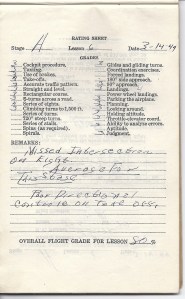 RATING SHEET
Stage A Lesson 6 Date 3-14-49
GRADES
Cockpit procedure.
Taxiing.
Use of brakes.
Take-offs.
Accurate traffic pattern.
Straight and level.
Rectangular course.
S-turns across a road.
Series of eights.
Climbing turns to 1,500 ft.
Series of turns.
720° steep turns.
Series of stalls.
Spins (as required).
Spirals.
Glides and gliding turns.
Coordination exercises.
Forced landings.
180° side approach.
Landings.
Power wheel landings.
Parking the airplane.
Planning.
Looking around.
Holding altitude.
Throttle-elevator coord.
Ability to analyze errors.
Aptitude.
Judgment.
REMARKS:
Missed Intersection
on Right.
Average For
This Stage
Poor Directional
Control on Take Off.
OVERALL FLIGHT GRADE FOR LESSON